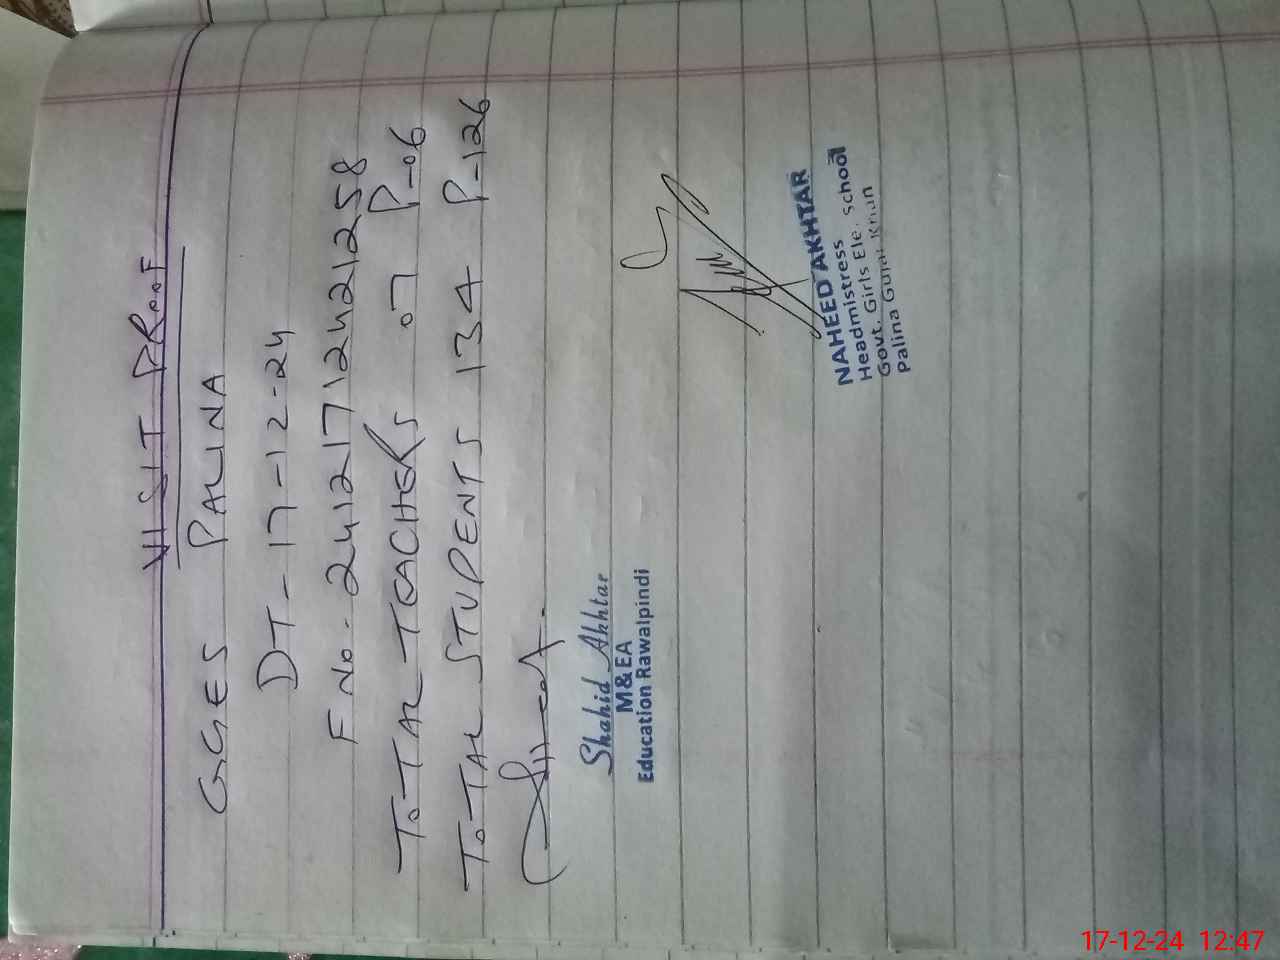 VISIT PROOF
GGES PALINA
DT-17-12-24
F No. 24121712421258
TOTAL TEACHERS 07 P-06
TOTAL STUDENTS 134 P-126
Shahid Akhtar
M&EA
Education Rawalpindi
NAHEED AKHTAR
Headmistress
Govt. Girls Ele. School
Palina Gujar Khan
17-12-24 12:47